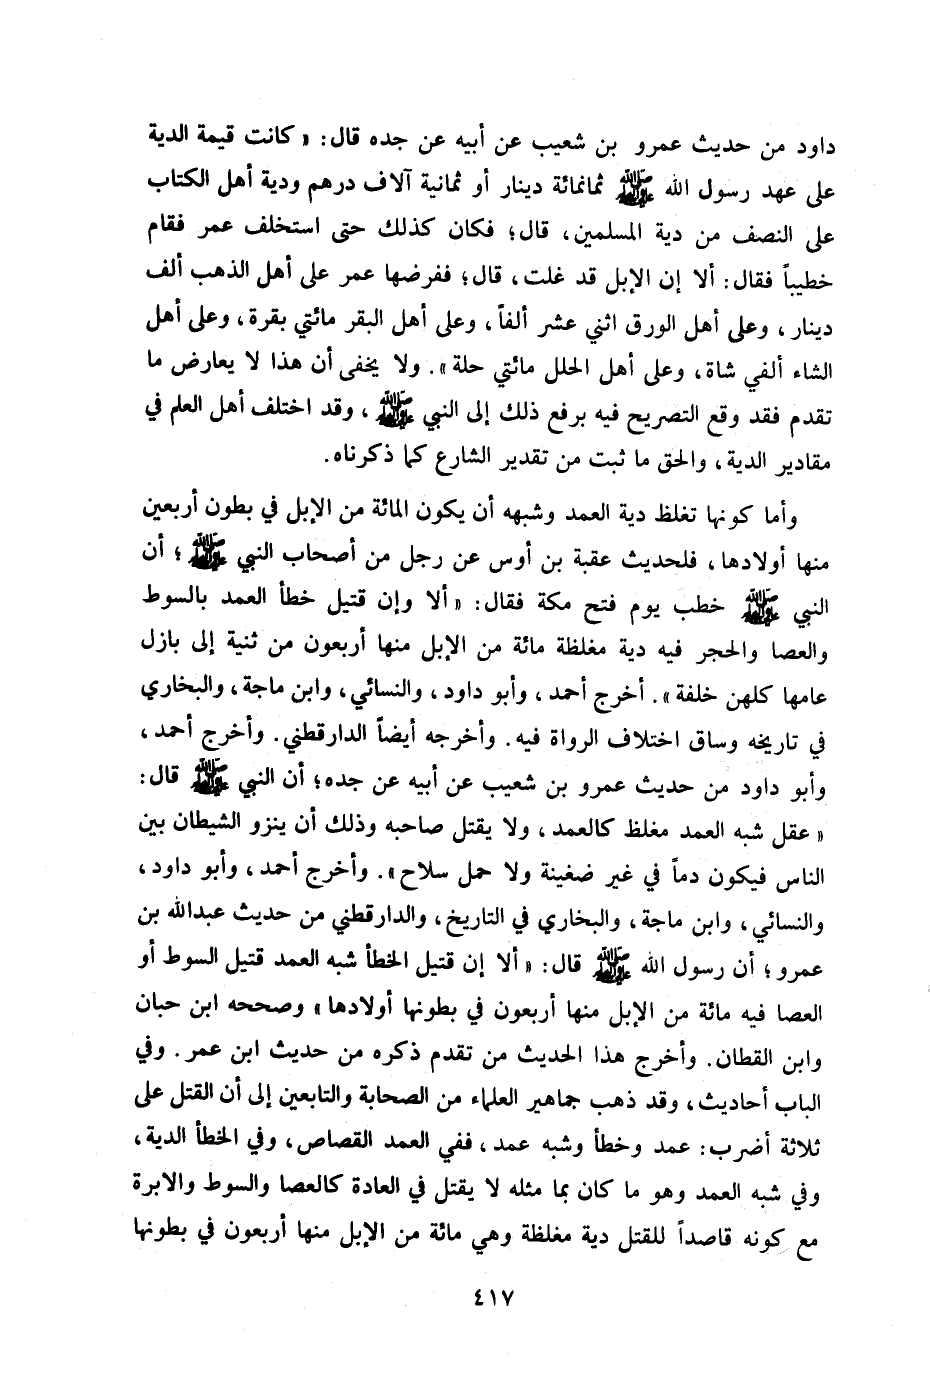 داود من حديث عمرو بن شعيب عن أبيه عن جده قال: « كانت قيمة الدية
على عهد رسول الله ﷺ ثمانمائة دينار أو ثمانية آلاف درهم ودية أهل الكتاب
على النصف من دية المسلمين، قال؛ فكان كذلك حتى استخلف عمر فقام
خطيباً فقال: ألا إن الإبل قد غلت، قال؛ ففرضها عمر على أهل الذهب ألف
دينار، وعلى أهل الورق اثني عشر ألفاً، وعلى أهل البقر مائتي بقرة، وعلى أهل
الشاء ألفي شاة، وعلى أهل الحلل مائتي حلة ». ولا يخفى أن هذا لا يعارض ما
تقدم فقد وقع التصريح فيه برفع ذلك إلى النبي ﷺ، وقد اختلف أهل العلم في
مقادير الدية، والحق ما ثبت من تقدير الشارع كما ذكرناه.
وأما كونها تغلظ دية العمد وشبهه أن يكون المائة من الإبل في بطون أربعين
منها أولادها، فلحديث عقبة بن أوس عن رجل من أصحاب النبي ﷺ؛ أن
النبي ﷺ خطب يوم فتح مكة فقال: « ألا وإن قتيل خطأ العمد بالسوط
والعصا والحجر فيه دية مغلظة مائة من الإبل منها أربعون من ثنية إلى بازل
عامها كلهن خلفة ». أخرج أحمد، وأبو داود، والنسائي، وابن ماجة، والبخاري
في تاريخه وساق اختلاف الرواة فيه. وأخرجه أيضاً الدارقطني. وأخرج أحمد،
وأبو داود من حديث عمرو بن شعيب عن أبيه عن جده؛ أن النبي ﷺ قال:
« عقل شبه العمد مغلظ كالعمد، ولا يقتل صاحبه وذلك أن ينزو الشيطان بين
الناس فيكون دماً في غير ضغينة ولا حمل سلاح ». وأخرج أحمد، وأبو داود،
والنسائي، وابن ماجة، والبخاري في التاريخ، والدارقطني من حديث عبدالله بن
عمرو؛ أن رسول الله ﷺ قال: « ألا إن قتيل الخطأ شبه العمد قتيل السوط أو
العصا فيه مائة من الإبل منها أربعون في بطونها أولادها » وصححه ابن حبان
وابن القطان. وأخرج هذا الحديث من تقدم ذكره من حديث ابن عمر. وفي
الباب أحاديث، وقد ذهب جماهير العلماء من الصحابة والتابعين إلى أن القتل على
ثلاثة أضرب: عمد وخطأ وشبه عمد، ففي العمد القصاص، وفي الخطأ الدية،
وفي شبه العمد وهو ما كان بما مثله لا يقتل في العادة كالعصا والسوط والابرة
مع كونه قاصداً للقتل دية مغلظة وهي مائة من الإبل منها أربعون في بطونها
٤١٧